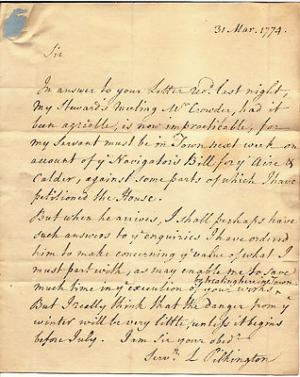 31 Mar. 1774.
Sir
In answer to your Letter recd. last night,
my Steward's meeting Mr Crowder, had it
been agreable, is now impracticable, for
my Servant must be in Town next week on
account of ye Navigators Bill for ye Aire &
Calder, against some parts of which I have
petitioned the House.
But when he arrives, I shall perhaps have
such answers to ye enquiries I have ordered
him to make concerning ye value of what I
must part with, as may enable me to save
by treating here in Town
much time in ye execution of your works.
But I really think that the danger from ye
winter will be very little, unless it begins
before July. I am Sir your obedt
Servt. L Pilkington